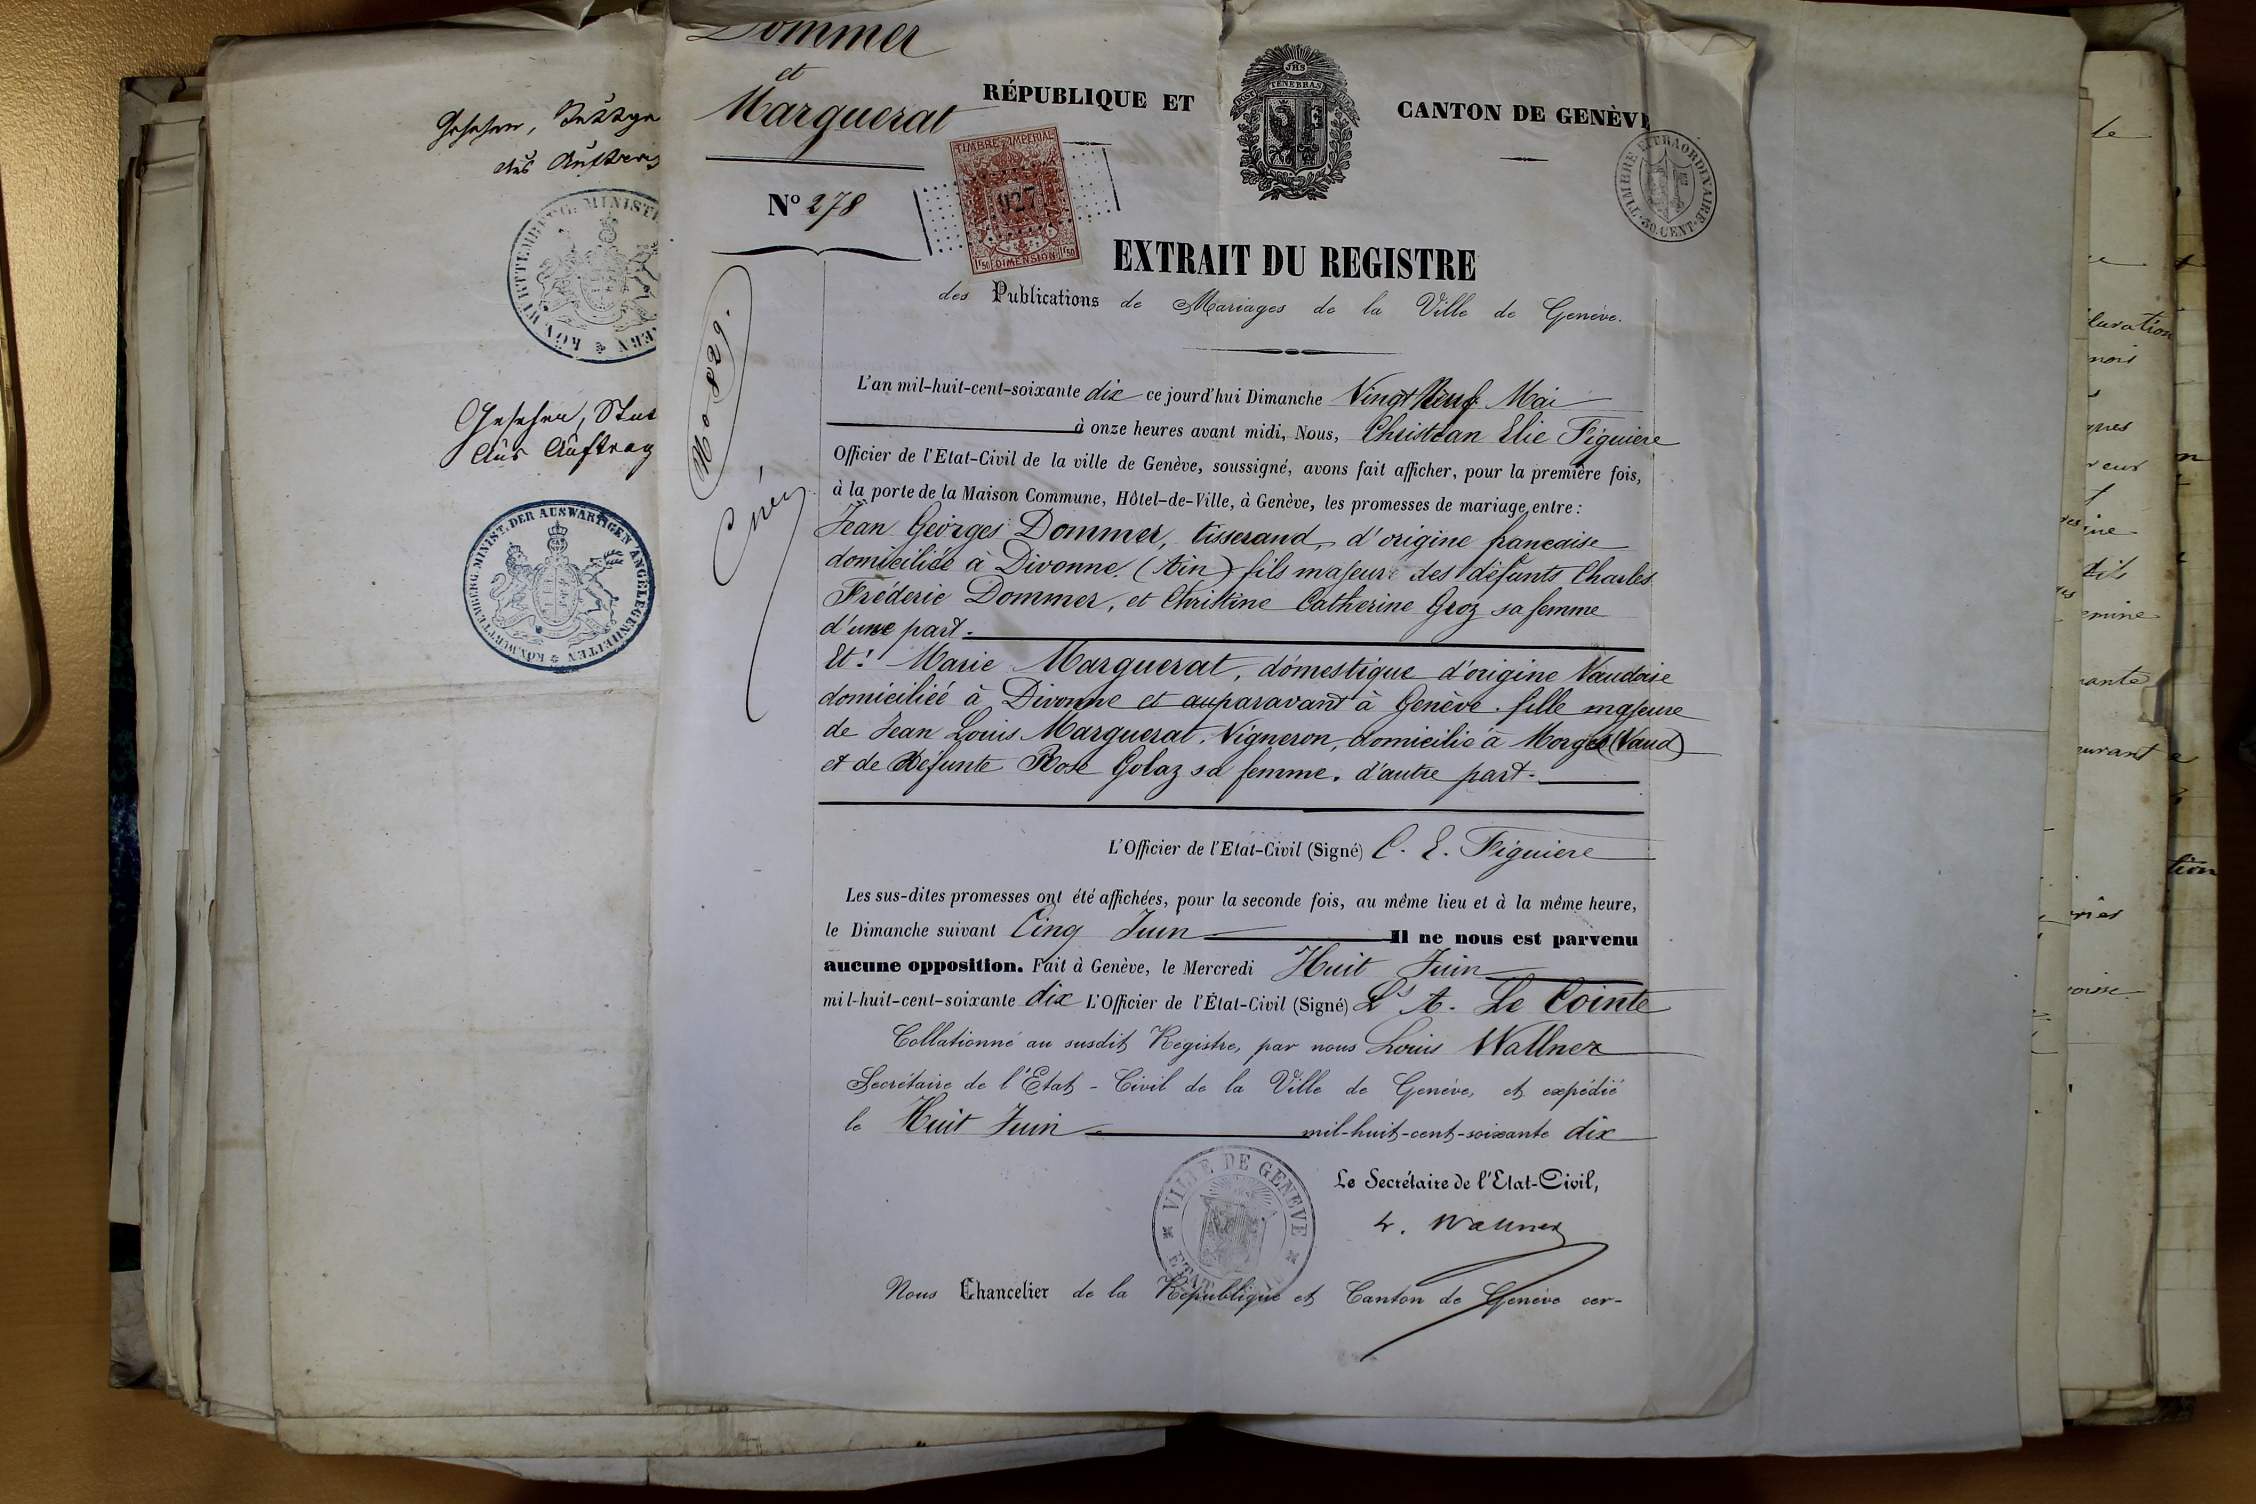 Gesehen,
Aus Auftrag
KÖN. WÜRTTEMBERG. MINIST
Gesehen,
Aus Auftrag
KÖN. WÜRTTEMBERG. MINIST. DER AUSWÄRTIGEN ANGELEGENHEITEN
Dommer
et
Marguerat
RÉPUBLIQUE ET
POST TENEBRAS
JHS
CANTON DE GENÈVE
TIMBRE EXTRAORDINAIRE
30. CENT.
TIMBRE IMPERIAL
927
1f50 DIMENSION 1f50
No 278
EXTRAIT DU REGISTRE
des Publications de Mariages de la Ville de Genève.
No 829.
L'an mil-huit-cent-soixante dix ce jourd'hui Dimanche Vingt Neuf Mai
à onze heures avant midi, Nous, Christian Elie Figuiere
Officier de l'Etat-Civil de la ville de Genève, soussigné, avons fait afficher, pour la première fois,
à la porte de la Maison Commune, Hôtel-de-Ville, à Genève, les promesses de mariage entre :
Jean Georges Dommer, tisserand, d'origine française
domiciliée à Divonne (Ain) fils majeur des défunts Charles
Fréderic Dommer, et Christine Catherine Groz sa femme
d'une part.
Et: Marie Marguerat, domestique d'origine Vaudoise
domiciliée à Divonne et auparavant à Genève. fille majeure
de Jean Louis Marguerat, Vigneron, domicilié à Morges (Vaud)
et de Défunte Rose Golaz sa femme. d'autre part.
L'Officier de l'Etat-Civil (Signé) C. E. Figuiere
Les sus-dites promesses ont été affichées, pour la seconde fois, au même lieu et à la même heure,
le Dimanche suivant Cinq Juin Il ne nous est parvenu
aucune opposition. Fait à Genève, le Mercredi Huit Juin
mil-huit-cent-soixante dix L'Officier de l'État-Civil (Signé) Ls A. Le Cointe
Collationné au susdit Registre, par nous Louis Wallner
Secrétaire de l'Etat-Civil de la Ville de Genève, et expédié
le Huit Juin mil-huit-cent-soixante dix
VILLE DE GENEVE
ETAT
Le Secrétaire de l'Etat-Civil,
L. Wallner
Nous Chancelier de la République et Canton de Genève cer-